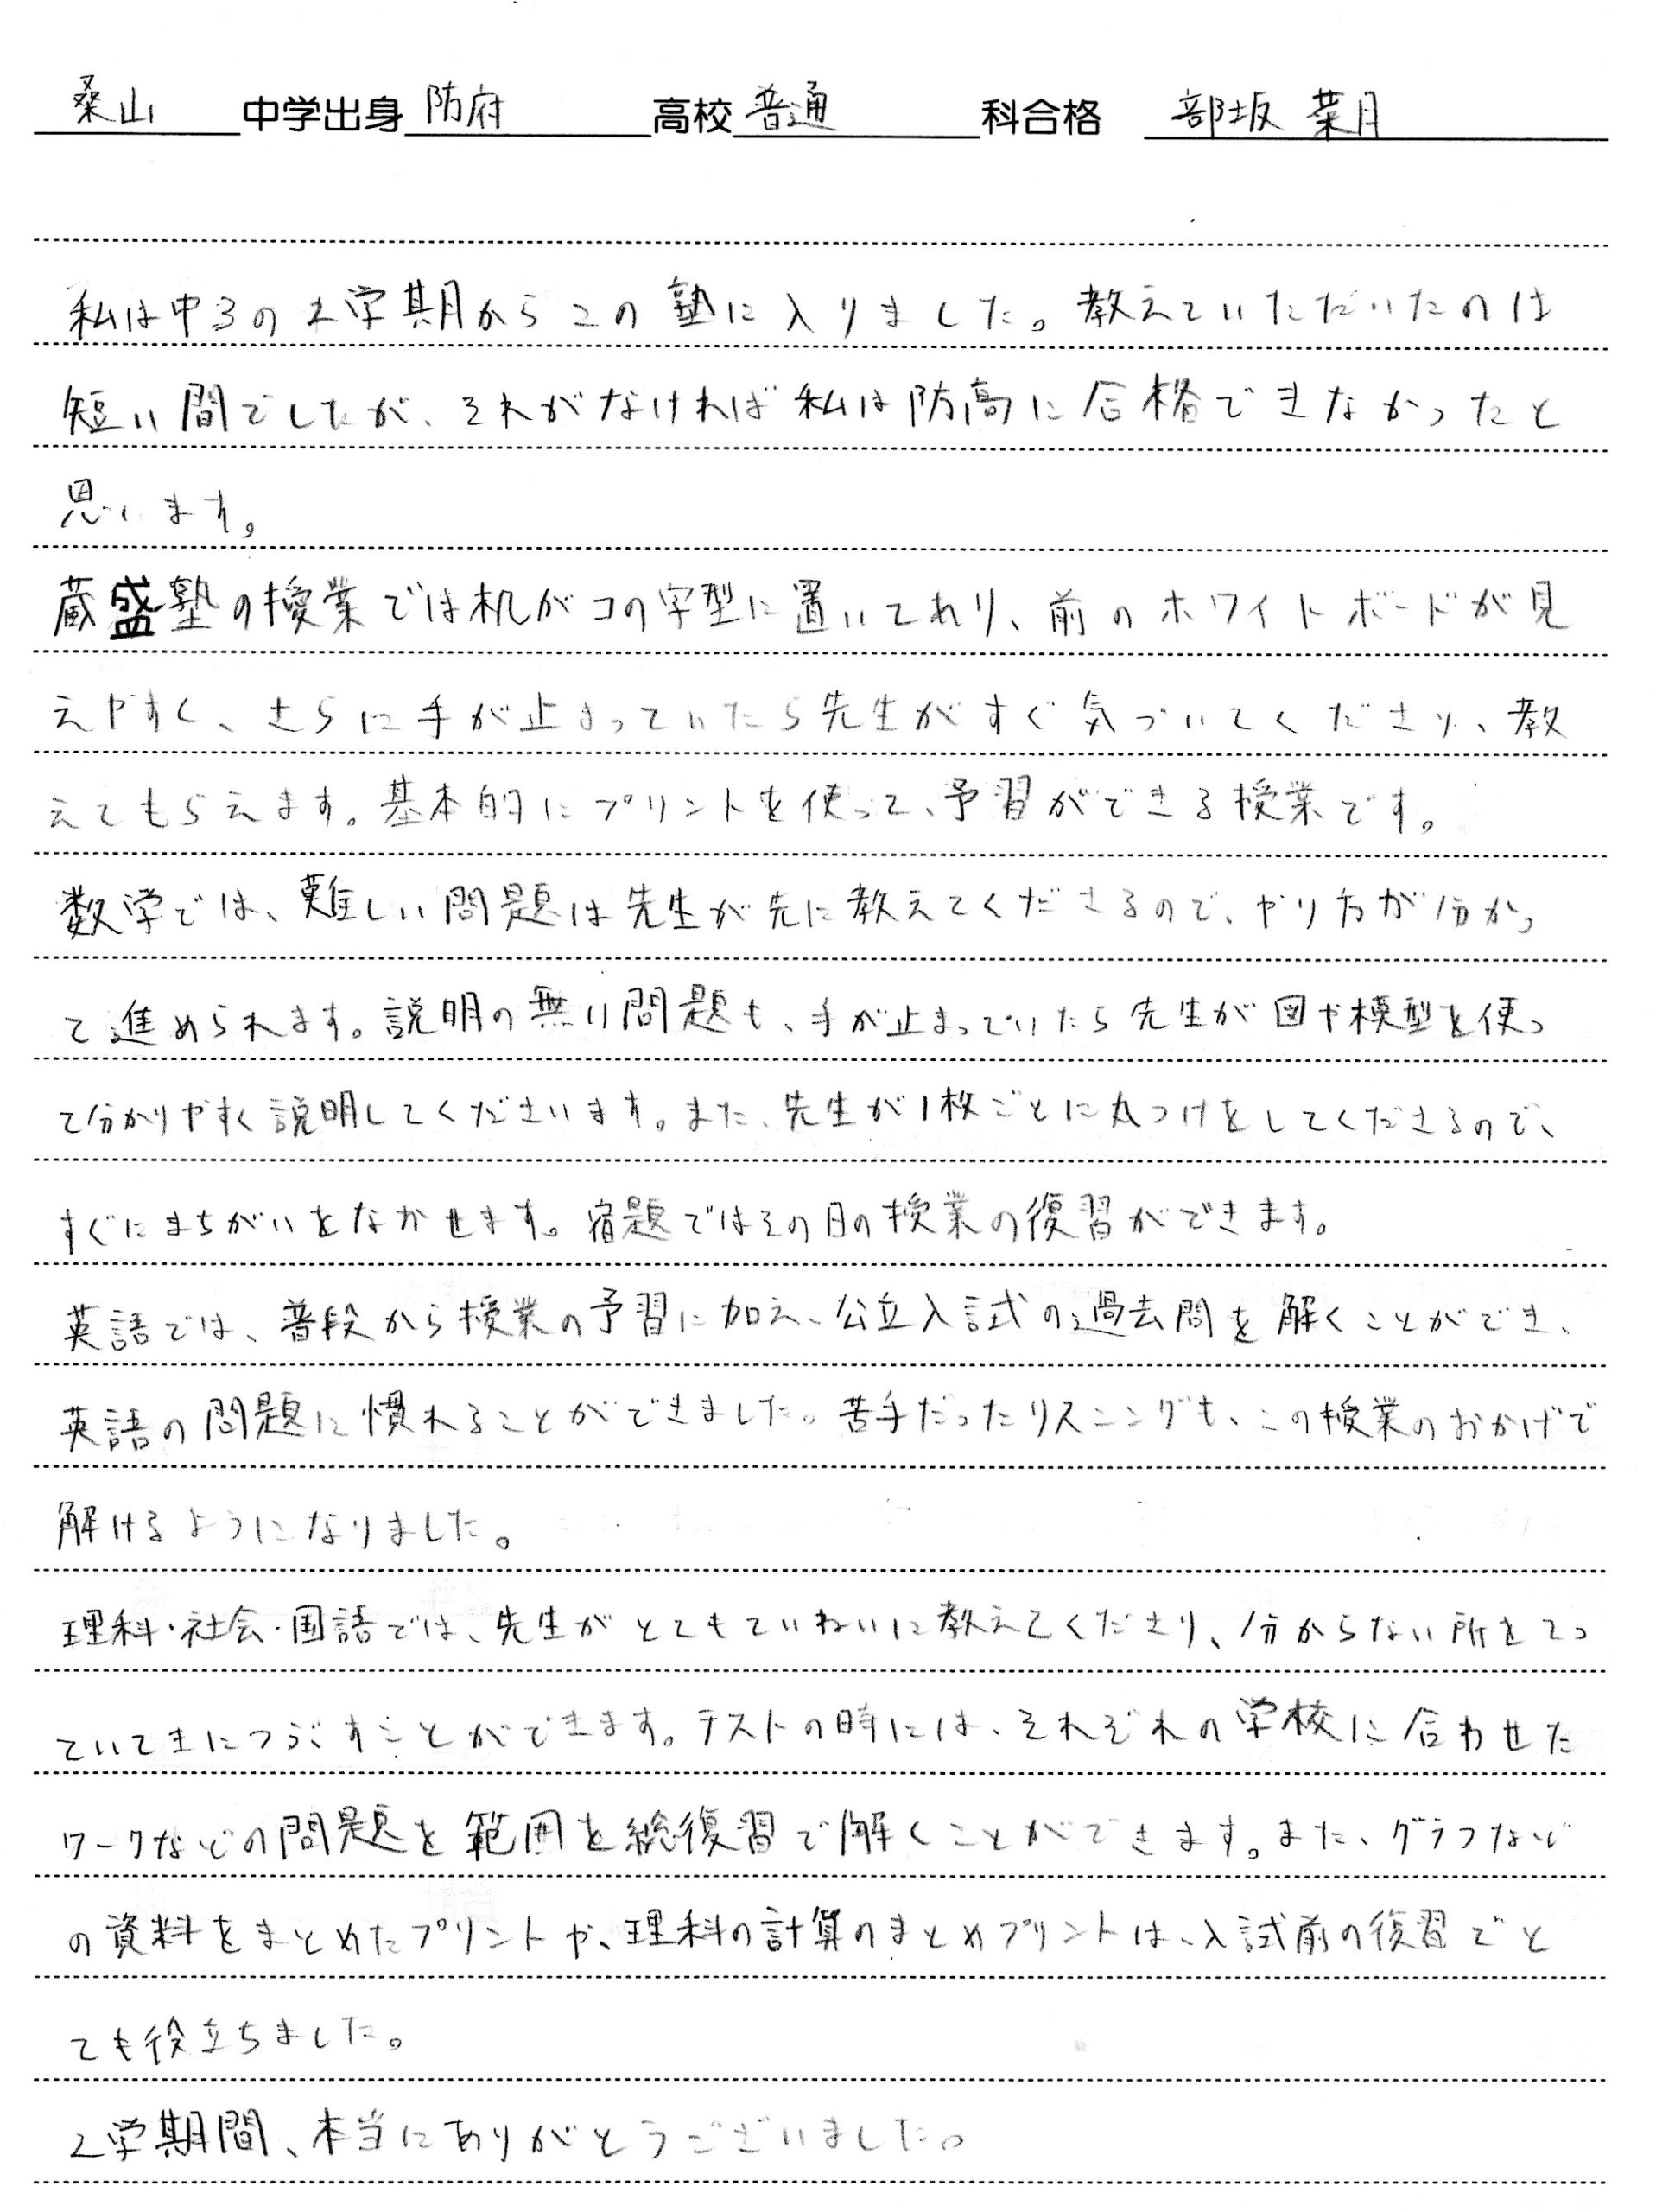 桑山 中学出身 防府 高校 普通 科合格 部坂 葉月
私は中3の2学期からこの塾に入りました。教えていただいたのは
短い間でしたが、それがなければ私は防高に合格できなかったと
思います。
蔵盛塾の授業では机がコの字型に置いてあり、前のホワイトボードが見
えやすく、さらに手が止まっていたら先生がすぐ気づいてくださり、教
えてもらえます。基本的にプリントを使って、予習ができる授業です。
数学では、難しい問題は先生が先に教えてくださるので、やり方が分かっ
て進められます。説明の無い問題も、手が止まっていたら先生が図や模型を使っ
て分かりやすく説明してくださいます。また、先生が1枚ごとに丸つけをしてくださるので、
すぐにまちがいをなおせます。宿題ではその日の授業の復習ができます。
英語では、普段から授業の予習に加え、公立入試の過去問を解くことができ、
英語の問題に慣れることができました。苦手だったリスニングも、この授業のおかげで
解けるようになりました。
理科・社会・国語では、先生がとてもていねいに教えてくださり、分からない所をてっ
ていてきにつぶすことができます。テストの時には、それぞれの学校に合わせた
ワークなどの問題を範囲を総復習で解くことができます。また、グラフなど
の資料をまとめたプリントや、理科の計算のまとめプリントは、入試前の復習でと
ても役立ちました。
2学期間、本当にありがとうございました。